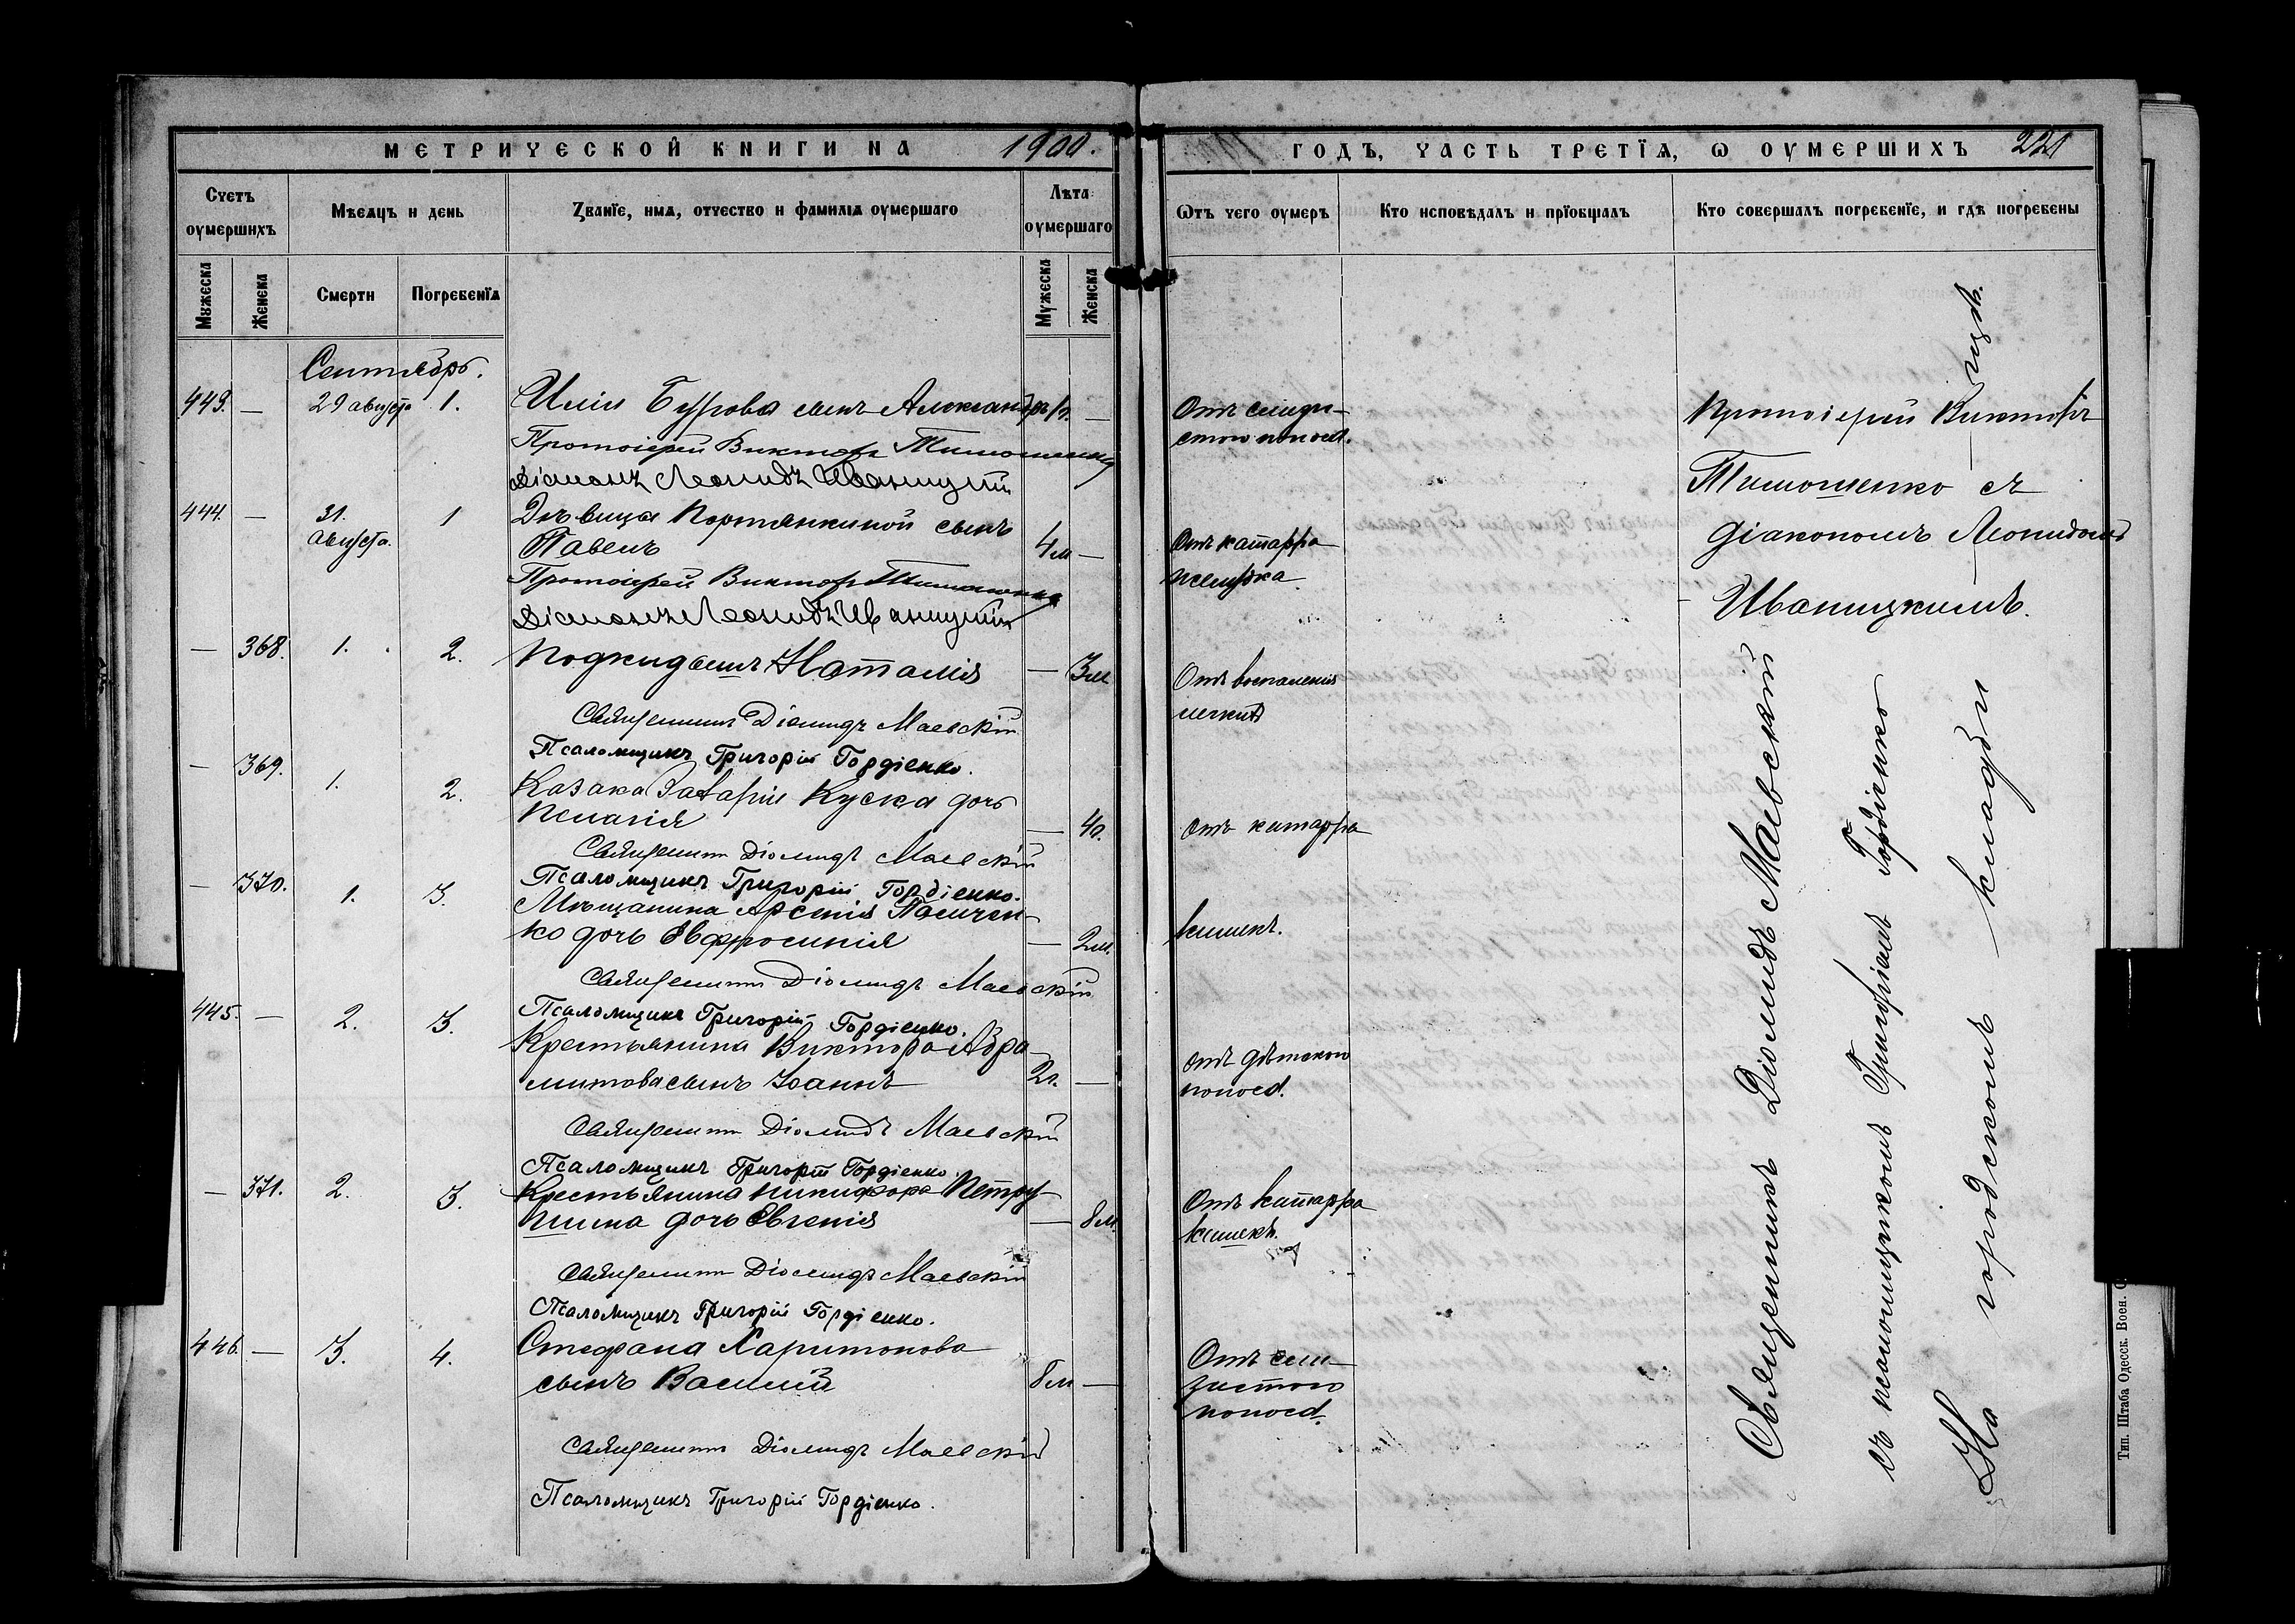 МЕТРИЧЕСКОЙ КНИГИ НА 1900.
Счетъ оумершихъ
Мѣсяцъ и день
Званїе, имя, отчество и фамилїя оумершаго
Лѣта оумершаго
Мужеска
Женска
Смерти
Погребенїя
Мужеска
Женска
Сентябрь.
443. — 29 августа 1. Иліи Бурова сынъ Александръ —
Протоіерей Викторъ Тимошенко
Діаконъ Леонидъ Иваницкій
444. — 31. августа. 1 Дѣвицы Портянкиной сынъ
Павелъ 4м —
Протоіерей Викторъ Тимошенко
Діаконъ Леонидъ Иваницкій
— 368. 1. 2. Подкидышъ Наталія — 3м
Священникъ Діомидъ Маевскій
Псаломщикъ Григорій Гордіенко.
— 369. 1. 2. Казака Захарія Куска дочь
Пелагія — 4г.
Священникъ Діомидъ Маевскій
Псаломщикъ Григорій Гордіенко.
— 370. 1. 3. Мѣщанина Арсенія
ко дочь Евфросинія — 2м.
Священникъ Діомидъ Маевскій
Псаломщикъ Григорій Гордіенко.
445. — 2. 3. Крестьянина Виктора
сынъ Іоаннъ 2г. —
Священникъ Діомидъ Маевскій
Псаломщикъ Григорій Гордіенко.
— 371. 2. 3. Крестьянина Никифора Петру-
шина дочь Евгенія — 8м.
Священникъ Діомидъ Маевскій
Псаломщикъ Григорій Гордіенко.
446. — 3. 4. Стефана Харитонова
сынъ Василій 8м —
Священникъ Діомидъ Маевскій
Псаломщикъ Григорій Гордіенко.
ГОДЪ, ЧАСТЬ ТРЕТЇЯ, Ѡ ОУМЕРШИХЪ 221
Ѿтъ чего оумеръ
Кто исповѣдалъ и прїобщалъ
Кто совершалъ погребенїе, и гдѣ погребены
Отъ слизи-
стого понос.
Отъ катарра
желудка
Отъ воспаленія
легкихъ
Отъ катарра
кишекъ.
Отъ дѣтского
поноса.
Отъ катарра
кишекъ.
Отъ сли-
зистого
поноса.
Протоіерей Викторъ
Тимошенко съ
діакономъ Леонидомъ
Иваницкимъ.
Священникъ Діомидъ Маевскій
съ псаломщикомъ Григоріемъ Гордіенко
На городскомъ кладби
щѣ.
Тип. Штаба Одесск. Воен.